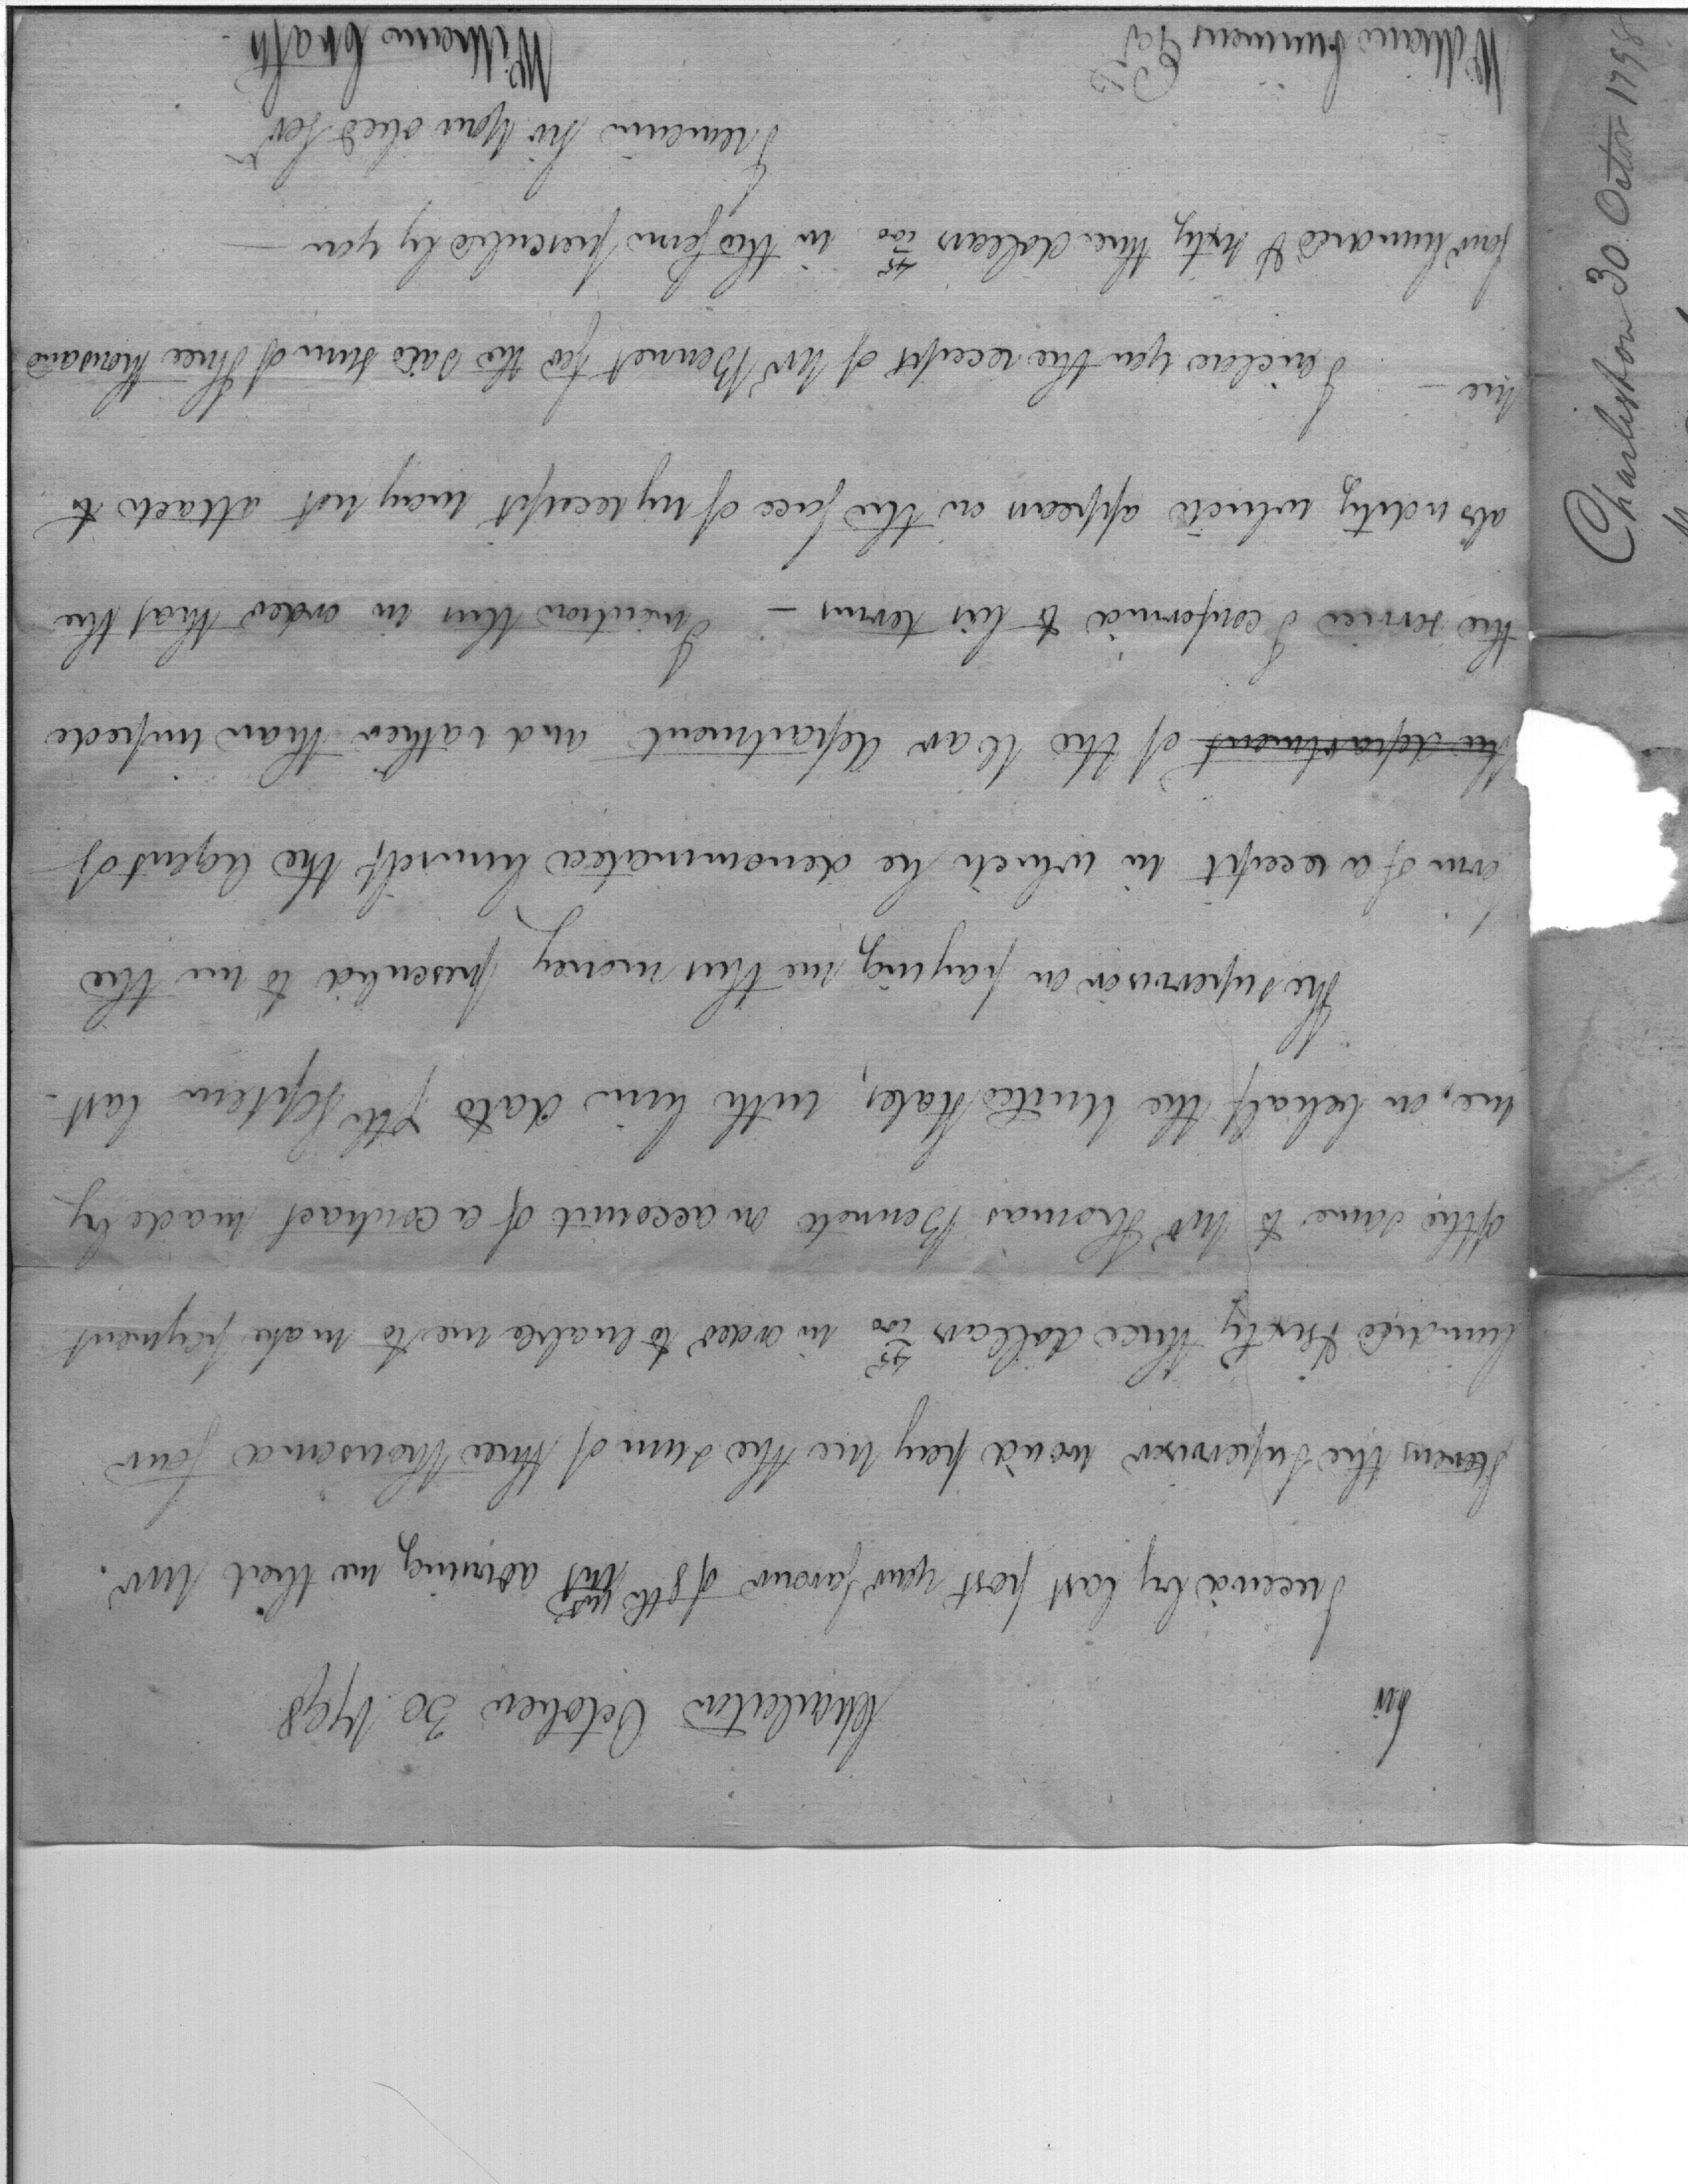 Charleston October 30 1798
Sir
I receivd by last post your favour of 8th inst advising me that Mr.
Stevens the Supervisor woud pay me the sum of three thousand four
hundred & sixty three dollars 45/100 in order to enable me to make payment
of the same to Mr Thomas Bennett on account of a contract made by
me, on behalf the United States, with him dated 7th Septem last.
The supervisor on paying me this money presented to me the
form of a receipt in which he denominated himself, the Agent of
the department of the War department and rather than impede
the service I conformed to his terms – I mention this in order that the
absurdity which appears on the face of my receipt may not attach to
me –
I inclose you the receipt of Mr Bennet for the said sum of three thousand
four hundred & sixty three dollars 45/100 in the form prescribed by you —
I remain Sir your obed Ser
William Crafts
William Simmons Esq
Charleston 30 Octor 1798